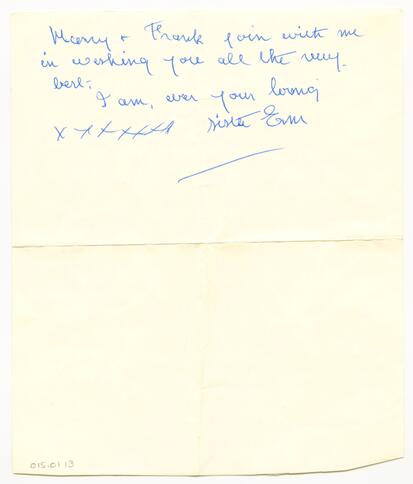 Harry + Frank join with me
in wishing you all the very
best.
I am, ever your loving
x x x x x x x sister Em
015.01 13